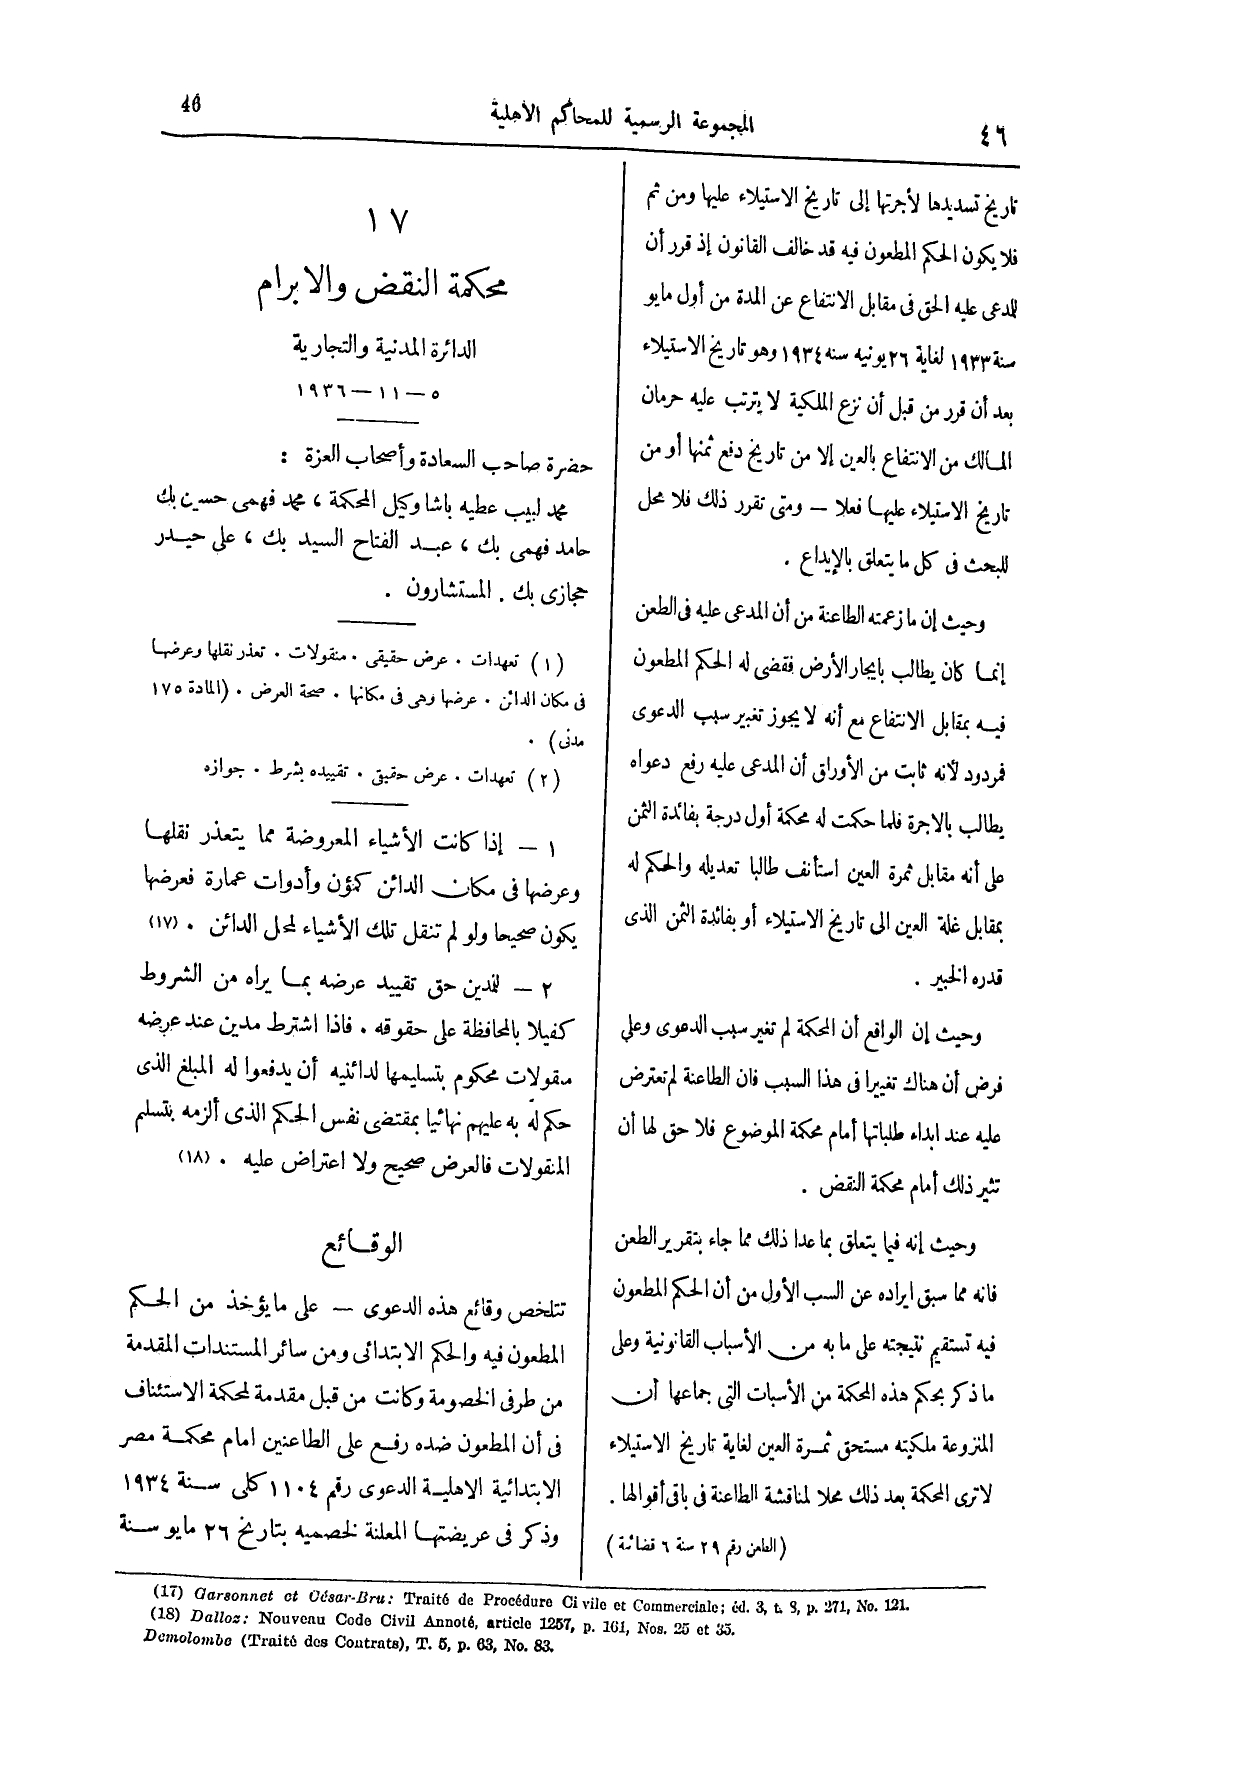 46
المجموعة الرسمية للمحاكم الأهلية
٤٦
تاريخ تسديدها لأجرتها إلى تاريخ الاستيلاء عليها ومن ثم
فلا يكون الحكم المطعون فيه قد خالف القانون إذ قرر أن
للمدعى عليه الحق فى مقابل الانتفاع عن المدة من أول مايو
سنة ١٩٣٣ لغاية ٢٦ يونيه سنه ١٩٣٤ وهو تاريخ الاستيلاء
بعد أن قرر من قبل أن نزع الملكية لا يترتب عليه حرمان
المالك من الانتفاع بالعين إلا من تاريخ دفع ثمنها أو من
تاريخ الاستيلاء عليها فعلا – ومتى تقرر ذلك فلا محل
للبحث فى كل ما يتعلق بالإيداع .
وحيث إن ما زعمته الطاعنة من أن المدعى عليه فى الطعن
إنما كان يطالب بايجار الأرض فقضى له الحكم المطعون
فيه بمقابل الانتفاع مع أنه لا يجوز تغيير سبب الدعوى
فمردود لأنه ثابت من الأوراق أن المدعى عليه رفع دعواه
يطالب بالاجرة فلما حكمت له محكمة أول درجة بفائدة الثمن
على أنه مقابل ثمرة العين استأنف طالبا تعديله والحكم له
بمقابل غلة العين الى تاريخ الاستيلاء أو بفائدة الثمن الذى
قدره الخبير .
وحيث إن الواقع أن المحكمة لم تغير سبب الدعوى وعلى
فرض أن هناك تغييرا فى هذا السبب فان الطاعنة لم تعترض
عليه عند ابداء طلباتها أمام محكمة الموضوع فلا حق لها أن
تثير ذلك أمام محكمة النقض .
وحيث إنه فيما يتعلق بما عدا ذلك مما جاء بتقرير الطعن
فانه مما سبق ايراده عن السبب الأول من أن الحكم المطعون
فيه تستقيم نتيجته على ما به من الأسباب القانونية وعلى
ما ذكر بحكم هذه المحكمة من الأسبات التى جماعها أن
المنزوعة ملكيته مستحق ثمرة العين لغاية تاريخ الاستيلاء
لا ترى المحكمة بعد ذلك محلا لمناقشة الطاعنة فى باقى أقوالها .
(الطعن رقم ٢٩ سنة ٦ قضائة)
١٧
محكمة النقض والابرام
الدائرة المدنية والتجارية
٥ – ١١ – ١٩٣٦
حضرة صاحب السعادة وأصحاب العزة :
محمد لبيب عطيه باشا وكيل المحكمة ، محمد فهمى حسين بك
حامد فهمى بك ، عبد الفتاح السيد بك ، على حيدر
حجازى بك . المستشارون .
(١) تعهدات . عرض حقيقى . منقولات . تعذر نقلها وعرضها
فى مكان الدائن . عرضها وهى فى مكانها . صحة العرض . (المادة ١٧٥
مدنى) .
(٢) تعهدات . عرض حقيقى . تقييده بشرط . جوازه
١ – إذا كانت الأشياء المعروضة مما يتعذر نقلها
وعرضها فى مكان الدائن كمؤن وأدوات عمارة فعرضها
يكون صحيحا ولو لم تنقل تلك الأشياء لمحل الدائن . (١٧)
٢ – للمدين حق تقييد عرضه بما يراه من الشروط
كفيلا بالمحافظة على حقوقه . فاذا اشترط مدين عند عرضه
منقولات محكوم بتسليمها لدائنيه أن يدفعوا له المبلغ الذى
حكم له به عليهم نهائيا بمقتضى نفس الحكم الذى ألزمه بتسلم
المنقولات فالعرض صحيح ولا اعتراض عليه . (١٨)
الوقائع
تتلخص وقائع هذه الدعوى – على ما يؤخذ من الحكم
المطعون فيه والحكم الابتدائى ومن سائر المستندات المقدمة
من طرفى الخصومة وكانت من قبل مقدمة لمحكمة الاستئناف
فى أن المطعون ضده رفع على الطاعنين امام محكمة مصر
الابتدائية الاهلية الدعوى رقم ١١٠٤ كلى سنة ١٩٣٤
وذكر فى عريضتها المعلنة لخصميه بتاريخ ٢٦ مايو سنة
(17) Garsonnet et César-Bru: Traité de Procédure Civile et Commerciale; éd. 3, t. 8, p. 271, No. 121.
(18) Dalloz: Nouveau Code Civil Annoté, article 1257, p. 161, Nos. 25 et 35.
Demolombe (Traité des Contrats), T. 5, p. 63, No. 83.